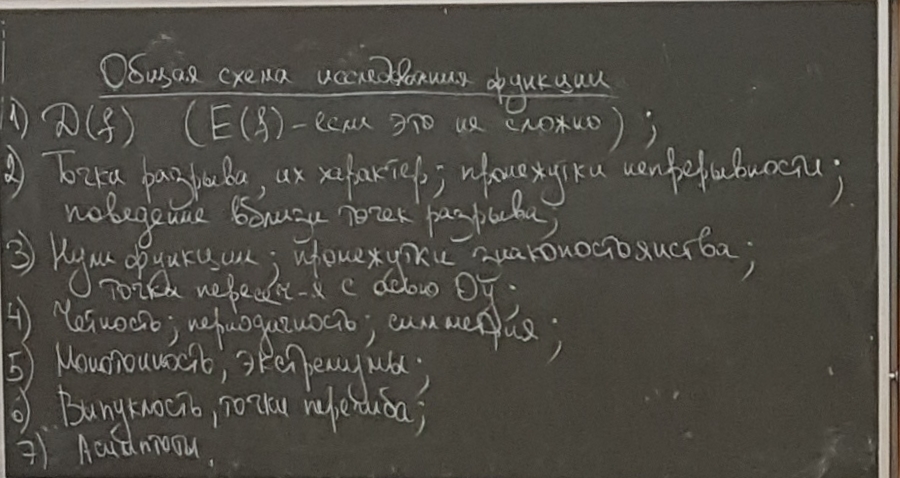 Общая схема исследования функции
1) D(f) (E(f) - если это не сложно);
2) Точки разрыва, их характер; промежутки непрерывности;
поведение вблизи точек разрыва;
3) Нули функции; промежутки знакопостоянства;
точки пересеч-я с осью Oy;
4) Чётность; периодичность; симметрия;
5) Монотонность, экстремумы;
6) Выпуклость, точки перегиба;
7) Асимптоты.